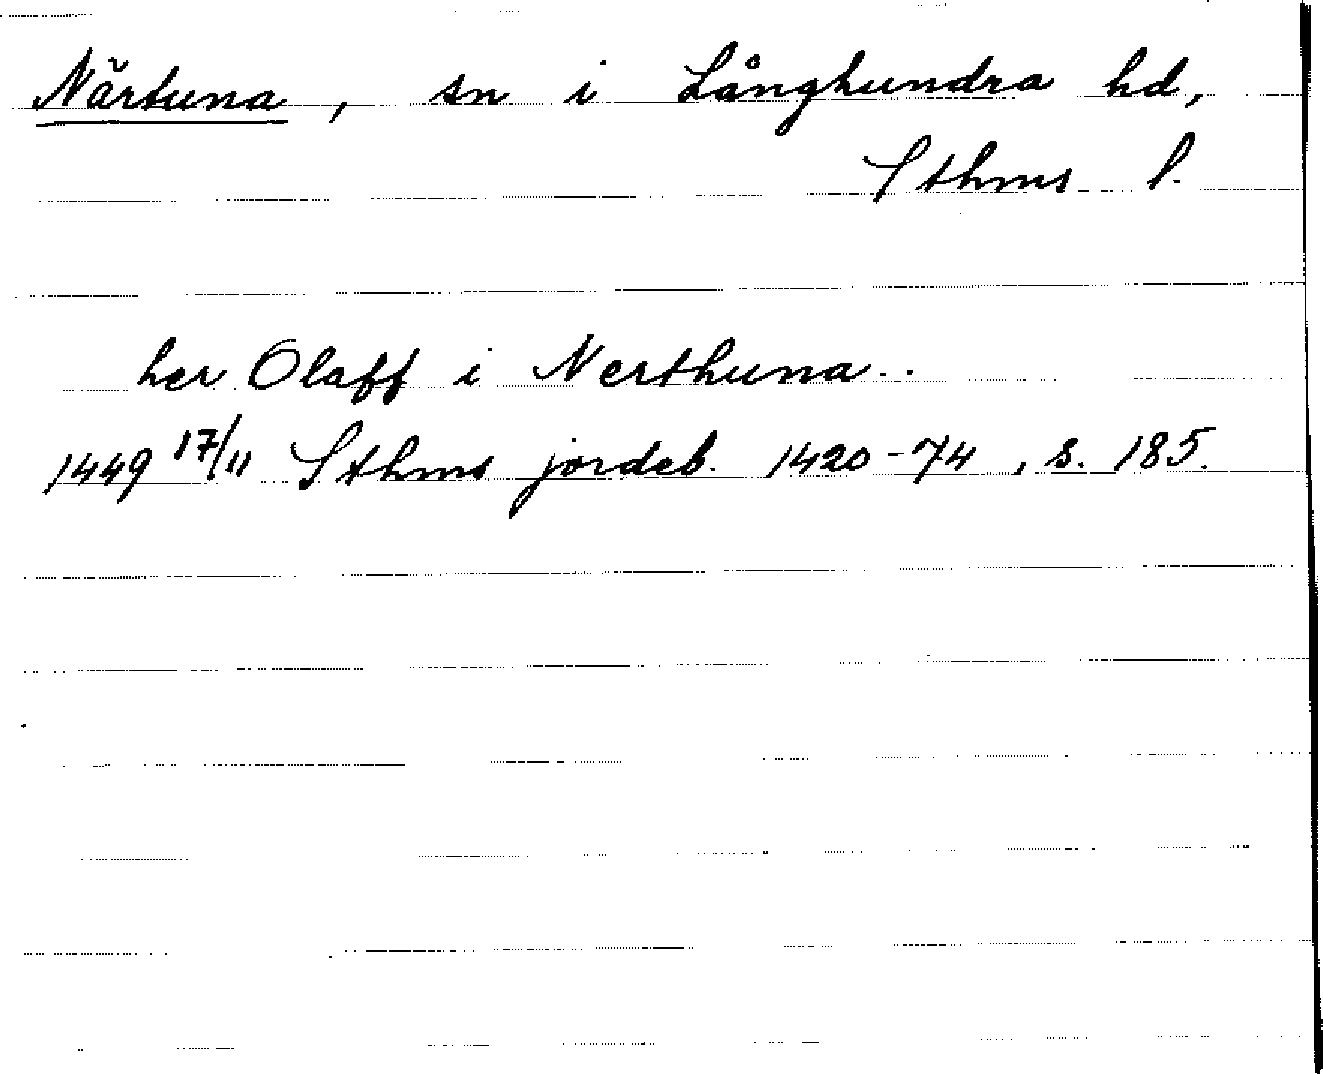 Närtuna, sn i Långhundra hd,
Sthms l.
her Olaff i Nerthuna..
1449 17/11 Sthms jordeb. 1420-74, s. 185.